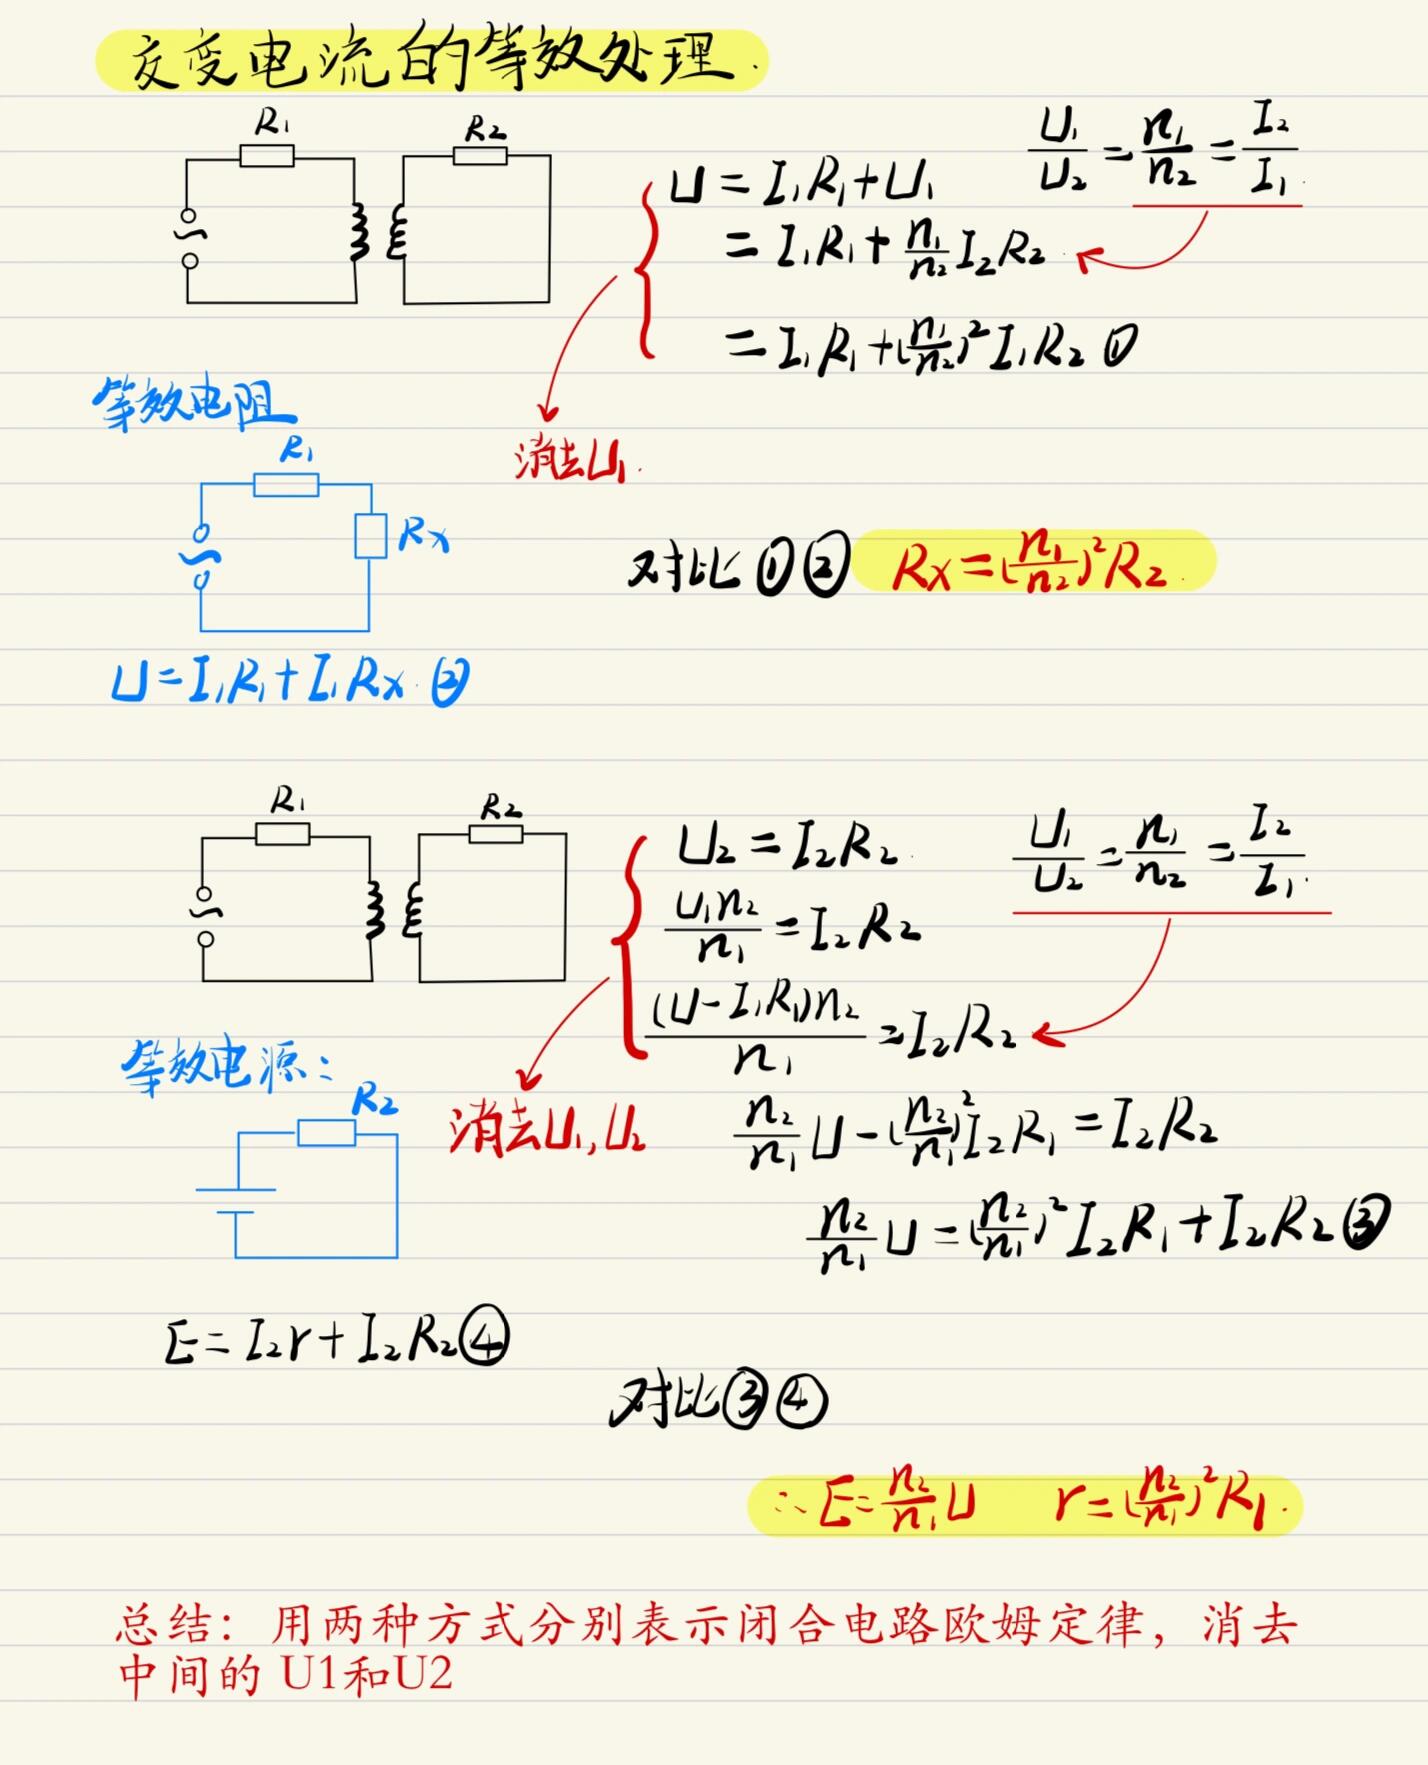 交变电流的等效处理.
R₁
R₂
U = I₁R₁ + U₁
U₁/U₂ = n₁/n₂ = I₂/I₁.
= I₁R₁ + n₁/n₂ I₂R₂
= I₁R₁ + (n₁/n₂)² I₁R₂ ①
消去U₁.
等效电阻
R₁
Rx
U = I₁R₁ + I₁Rx. ②
对比①② Rx = (n₁/n₂)² R₂.
R₁
R₂
U₂ = I₂R₂.
U₁/U₂ = n₁/n₂ = I₂/I₁.
U₁n₂/n₁ = I₂R₂
(U - I₁R₁)n₂/n₁ = I₂R₂
消去U₁, U₂
等效电源：
R₂
n₂/n₁ U - (n₂/n₁)² I₂R₁ = I₂R₂
n₂/n₁ U = (n₂/n₁)² I₂R₁ + I₂R₂ ③
E = I₂r + I₂R₂ ④
对比③④
∴ E = n₂/n₁ U r = (n₂/n₁)² R₁.
总结：用两种方式分别表示闭合电路欧姆定律，消去
中间的 U1和U2